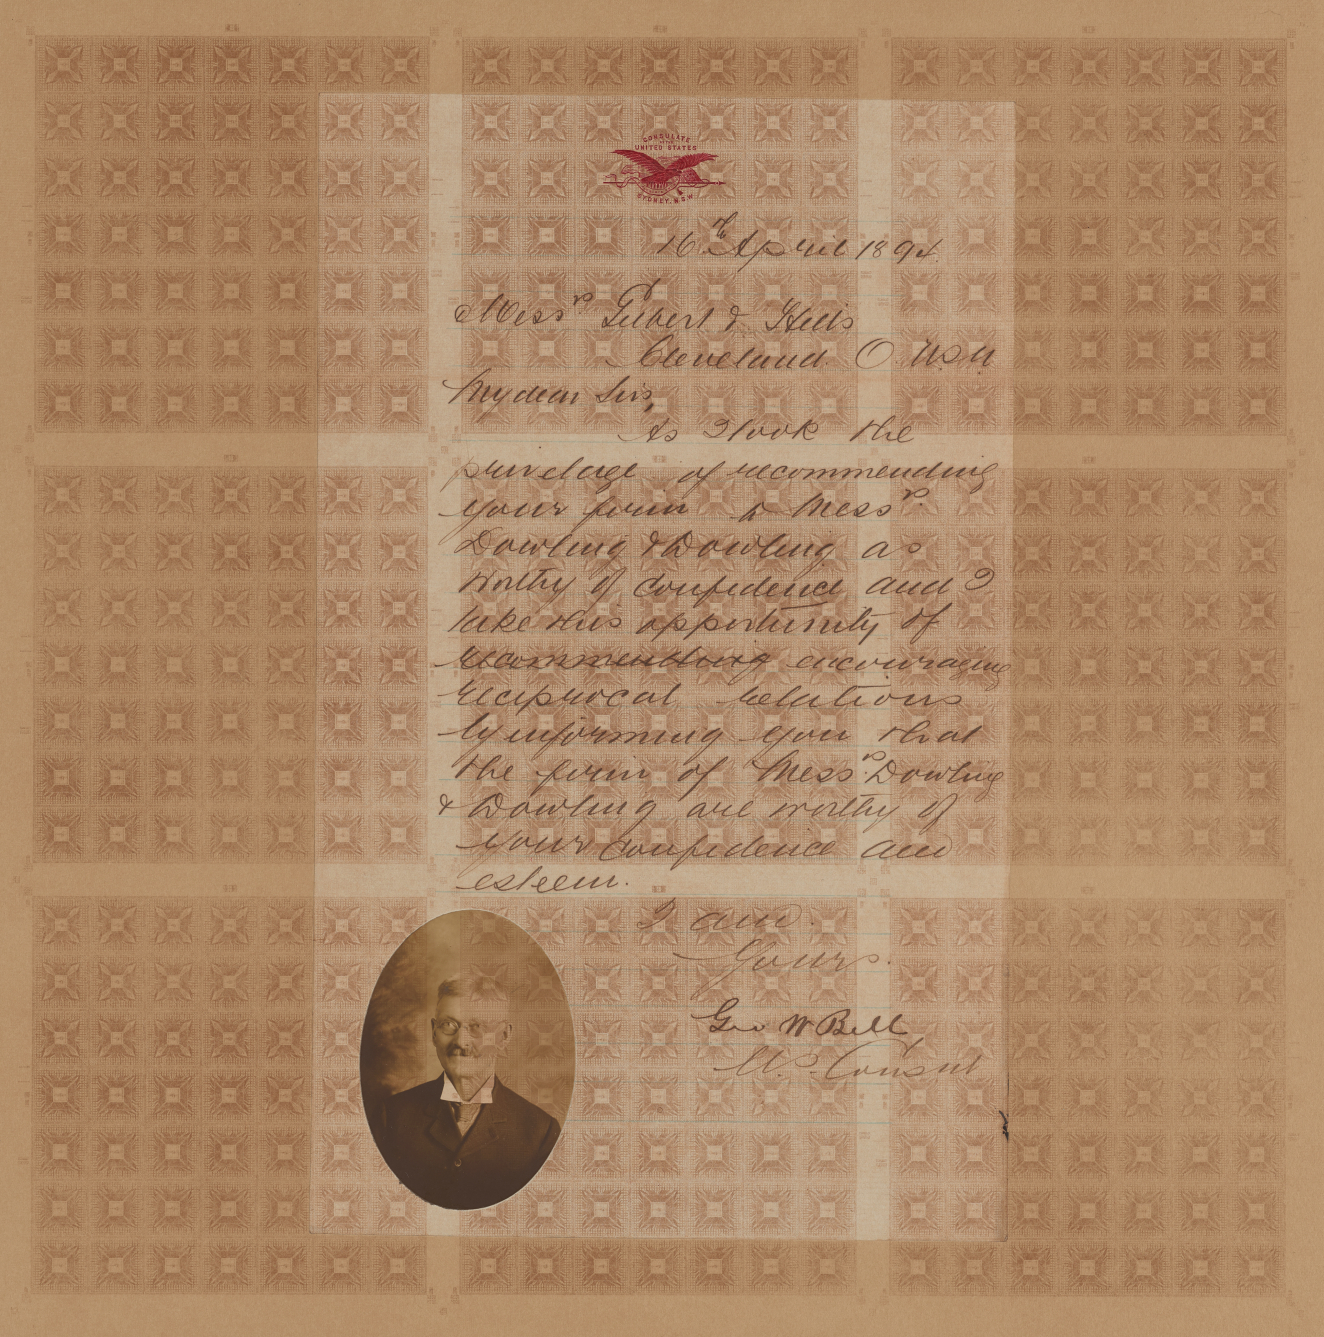 CONSULATE
OF THE
UNITED STATES
SYDNEY, N.S.W.
16th April 1894.
Messrs Gilbert & Hills
Cleveland. O. USA
My dear Sirs,
As I took the
privelage of recommending
your firm to Messrs
Dowling & Dowling as
worthy of confidence and I
take this opportunity of
recommending encouraging
reciprocal relations
by informing you that
the firm of Messrs Dowling
& Dowling are worthy of
your confidence and
esteem.
I am.
Yours.
Geo W Bell
U.S. Consul